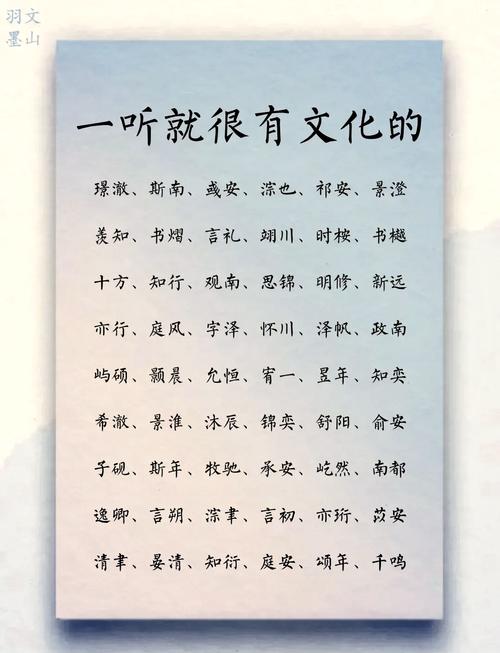 羽文
墨山
一听就很有文化的
璟澈、斯南、彧安、淙也、祁安、景澄
羡知、书熠、言礼、翊川、时桉、书樾
十方、知行、观南、思锦、明修、新远
亦行、庭风、字泽、怀川、泽帆、政南
屿硕、颢晨、允恒、宥一、昱年、知奕
希澈、景淮、沐辰、锦奕、舒阳、俞安
子砚、斯年、牧驰、承安、屹然、南都
逸卿、言朔、淙聿、言初、亦珩、苡安
清聿、晏清、知衍、庭安、颂年、千鸣